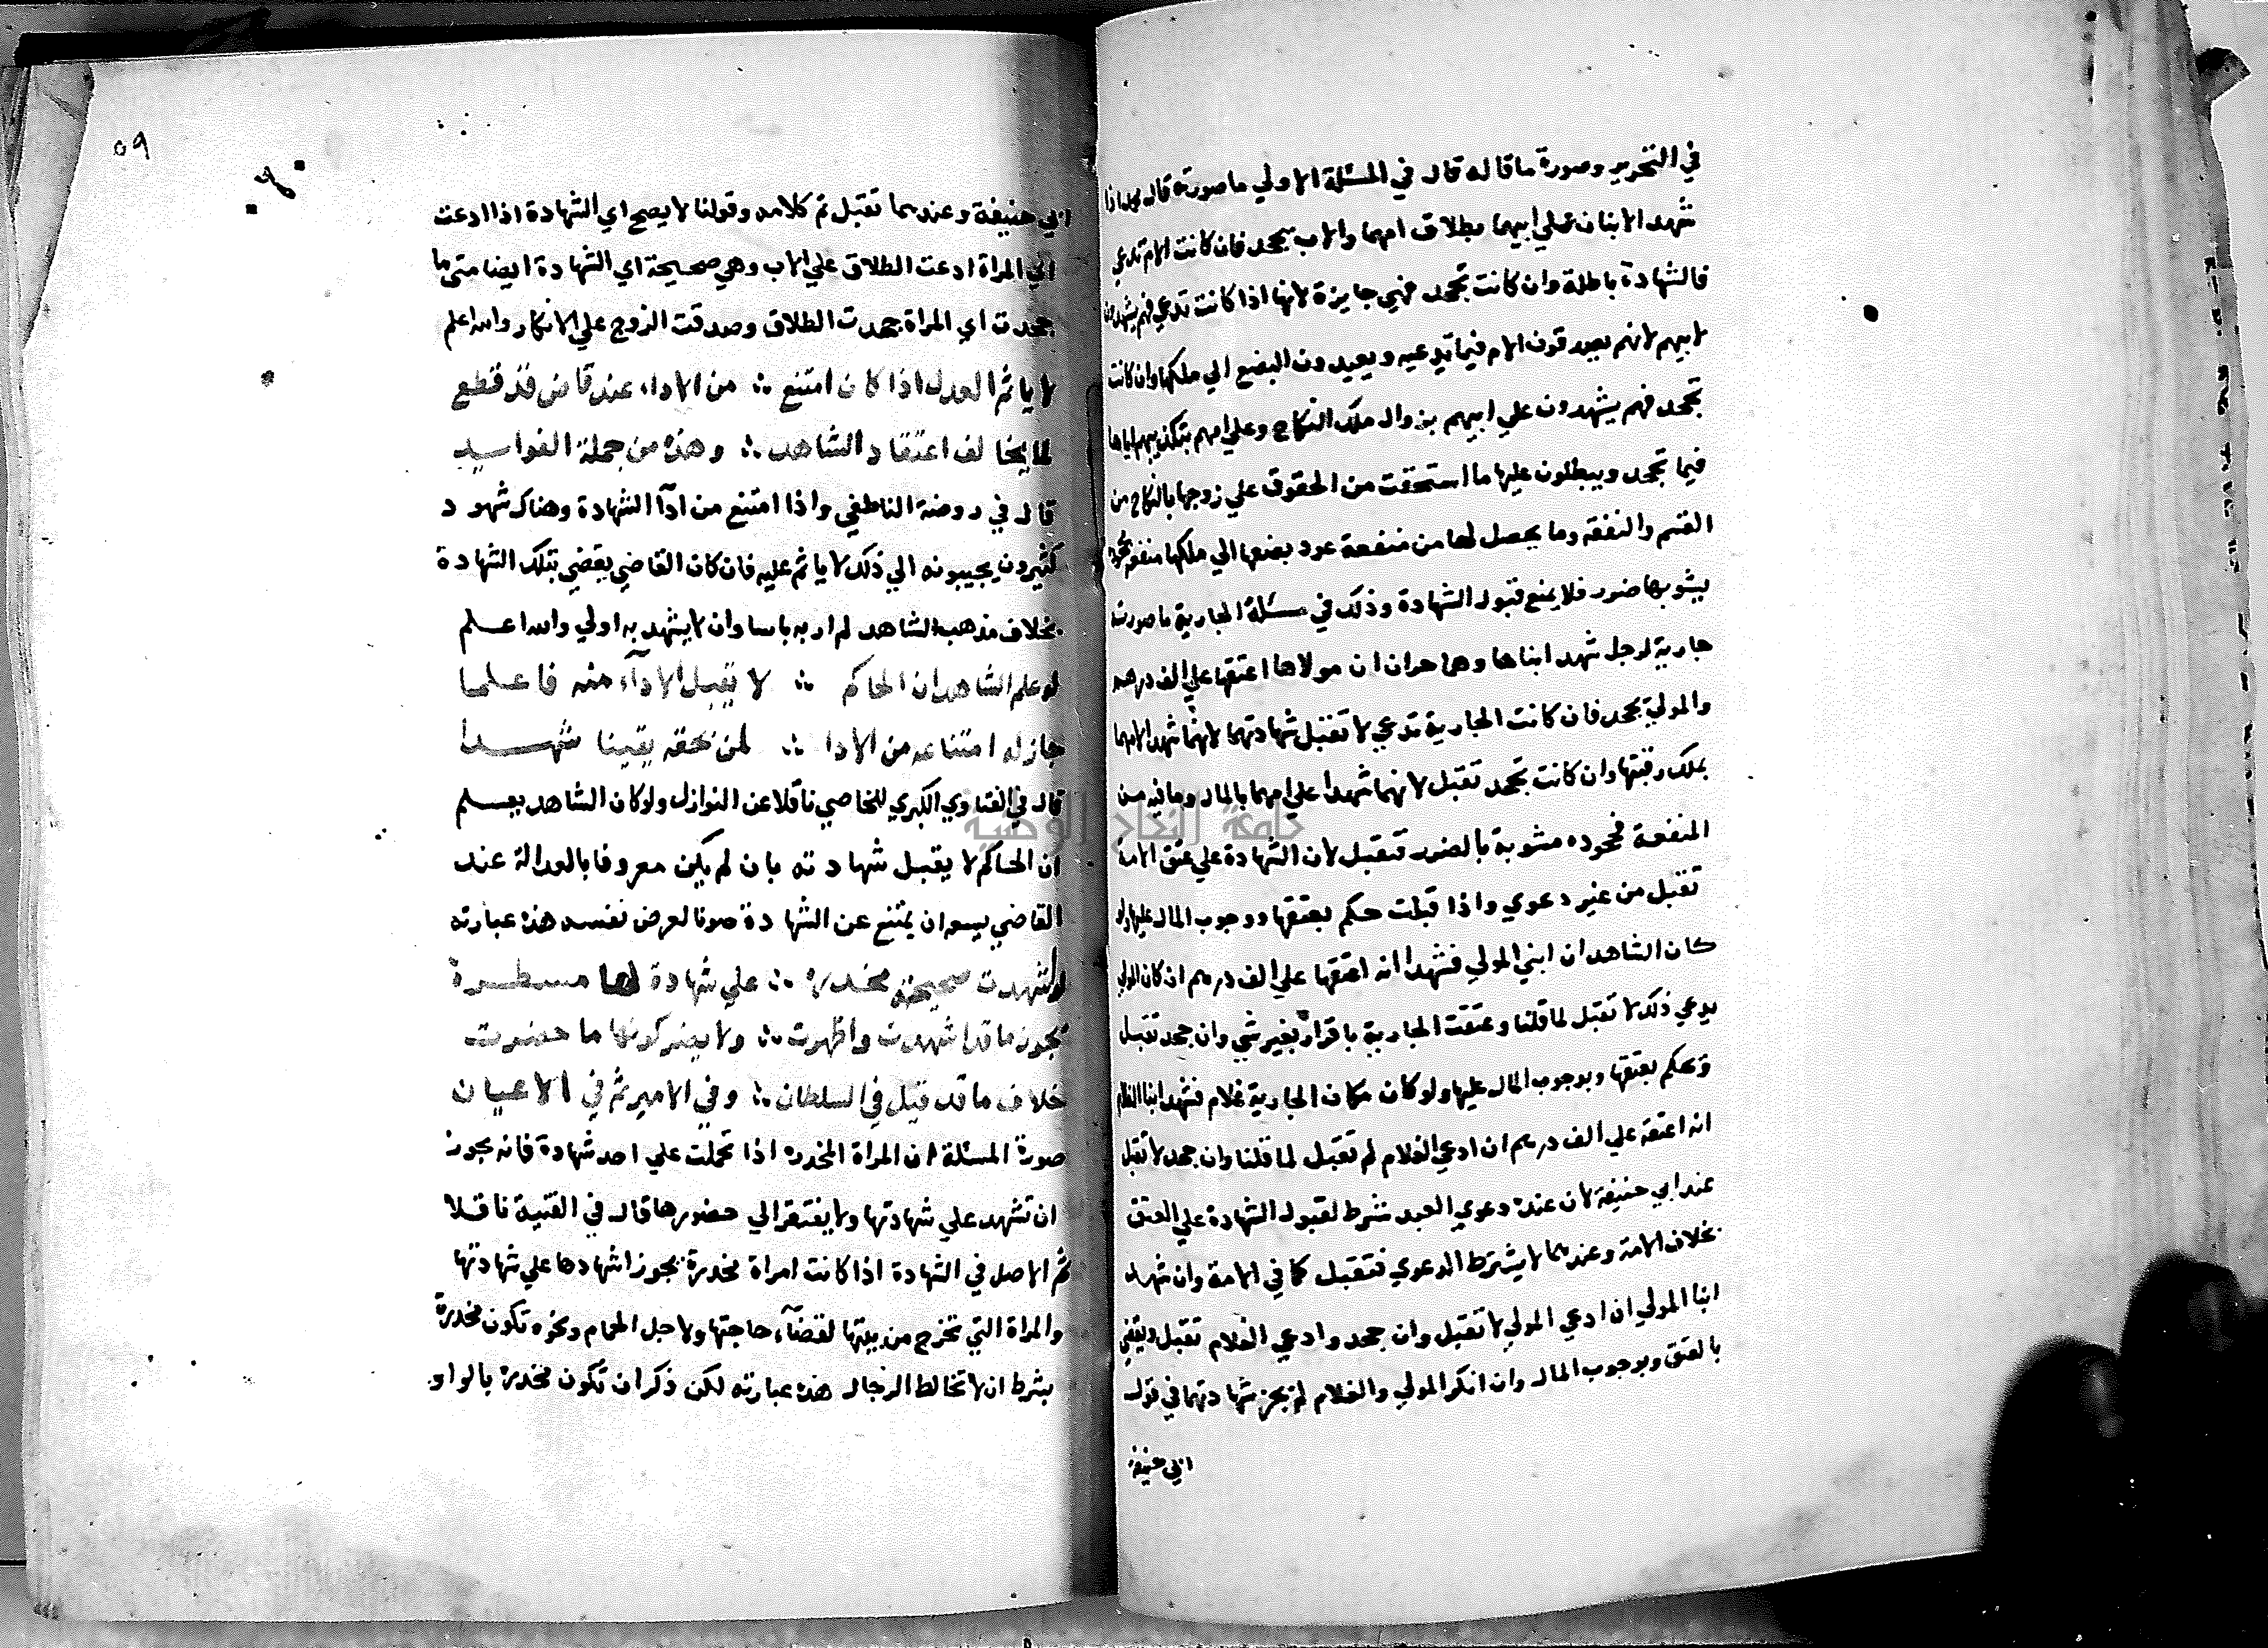 في التحرير وصورة ما قاله قال في المسئلة الاولي ما صورته قال محمد اذا
شهد الابنان علي ابيهما بطلاق امهما والاب يجحد فان كانت الام تدعي
فالشهادة باطلة وان كانت تجحد فهي جايزة لانها اذا كانت تدعي فهم يشهدون
لابيهم لانهم يصدقون الام فيما تدعيه ويعيدون البضع الي ملكها وان كانت
تجحد فهم يشهدون علي ابيهم بزوال ملك النكاح وعلي امهم بتكذيبهم اياها
فيما تجحد ويبطلون عليها ما استحقت من الحقوق علي زوجها بالنكاح من
القسم والنفقه وما يحصل لها من منفعة عود بضعها الي ملكها منفعة
يشوبها ضرر فلا يمنع قبول الشهادة وذلك في مسئلة الجارية ما صورته
جارية لرجل شهد ابناها وهما حران ان مولاها اعتقها علي الف درهم
والمولي يجحد فان كانت الجارية تدعي لا تقبل شهادتهما لانهما شهدا لامهما
بملك رقبتها وان كانت تجحد تقبل لانهما شهدا علي امهما بالمال وما فيه من
المنفعة فجحوده مشوبة بالضرر فتقبل لان الشهادة علي عتق الامة
تقبل من غير دعوي واذا قبلت حكم بعتقها ووجوب المال عليها ولو
كان الشاهدان ابني المولي فشهدا انه اعتقها علي الف درهم ان كان المولي
يدعي ذلك لا تقبل لما قلنا وعتقت الجارية باقراره بغير شي وان جحد تقبل
وحكم بعتقها وبوجوب المال عليها ولو كان مكان الجارية غلام فشهد ابنا الغلام
انه اعتقه علي الف درهم ان ادعي الغلام لم تقبل لما قلنا وان جحد لا تقبل
عند ابي حنيفة لان عنده دعوي العبد شرط لقبول الشهادة علي العتق
بخلاف الامة وعندهما لا يشترط الدعوي فتقبل كما في الامة وان شهد
ابنا المولي ان ادعي المولي لا تقبل وان جحد وادعي الغلام تقبل ويقضي
بالعتق وبوجوب المال وان انكر المولي والغلام لم تجز شهادتهما في قول
ابي حنيفة
٥٩
ابي حنيفة وعندهما تقبل تم كلامه وقولنا لا يصح اي الشهادة اذا ادعت
اي المراة ادعت الطلاق علي الاب وهي صحيحة اي الشهادة ايضا متي ما
جحدت اي المراة جحدت الطلاق وصدقت الزوج علي الانكار والله اعلم
لا ياثم العدل اذا كان امتنع ∴ من الاداء عند قاض قد قطع
لما يخالف اعتقاد الشاهد ∴ وهذه من جملة الفواسيد
قال في روضة الناطفي واذا امتنع من ادآ الشهادة وهناك شهود
كثيرون يجيبونه الي ذلك لا ياثم عليه فان كان القاضي يقضي بتلك الشهادة
بخلاف مذهب الشاهد لم ار به باسا وان لا يشهد به اولي والله اعلم
لو علم الشاهد ان الحاكم ∴ لا يقبل الادآء منه فاعلما
جاز له امتناعه من الادا ∴ لمن بحقه يقينا شهدا
قال في الفتاوي الكبري للخاصي ناقلا عن النوازل ولو كان الشاهد يعلم
ان الحاكم لا يقبل شهادته بان لم يكن معروفا بالعدالة عند
القاضي يسعه ان يمتنع عن الشهادة صونا لعرض نفسه هذه عبارته
لو شهدت صحيحة مخدره ∴ علي شهادة لها مسطرة
تجوز ما قد اشهدت واظهرت ∴ ولا يضر كونها ما حضرت
خلاف ما قد قيل في السلطان ∴ وفي الامير ثم في الاعيان
صورة المسئلة ان المراة المخدره اذا تحملت علي احد شهادة فانه يجوز
ان تشهد علي شهادتها ولا يفتقر الي حضورها قال في القنية ناقلا
ثم الاصل في الشهادة اذا كانت امراة مخدرة يجوز اشهادها علي شهادتها
والمراة التي تخرج من بيتها لقضآء حاجتها ولاجل الحمام ونحوه تكون مخدرة
بشرط ان لا تخالط الرجال هذه عبارته لكن ذكر ان تكون مخدرة بالواو
جامعة النجاح الوطنية